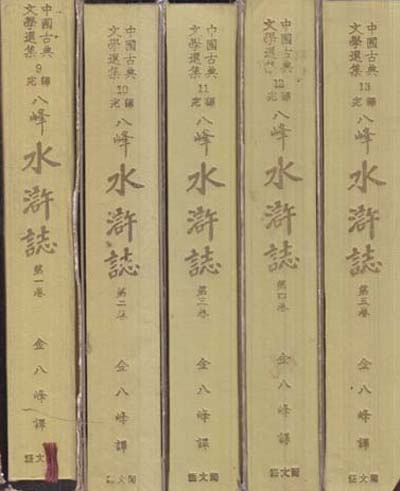 中國古典
文學選集
9
完譯
八峰
水滸誌
第一卷
金八峰譯
語文閣
中國古典
文學選集
10
完譯
八峰
水滸誌
第二卷
金八峰譯
語文閣
中國古典
文學選集
11
完譯
八峰
水滸誌
第三卷
金八峰譯
語文閣
中國古典
文學選集
12
完譯
八峰
水滸誌
第四卷
金八峰譯
語文閣
中國古典
文學選集
13
完譯
八峰
水滸誌
第五卷
金八峰譯
語文閣